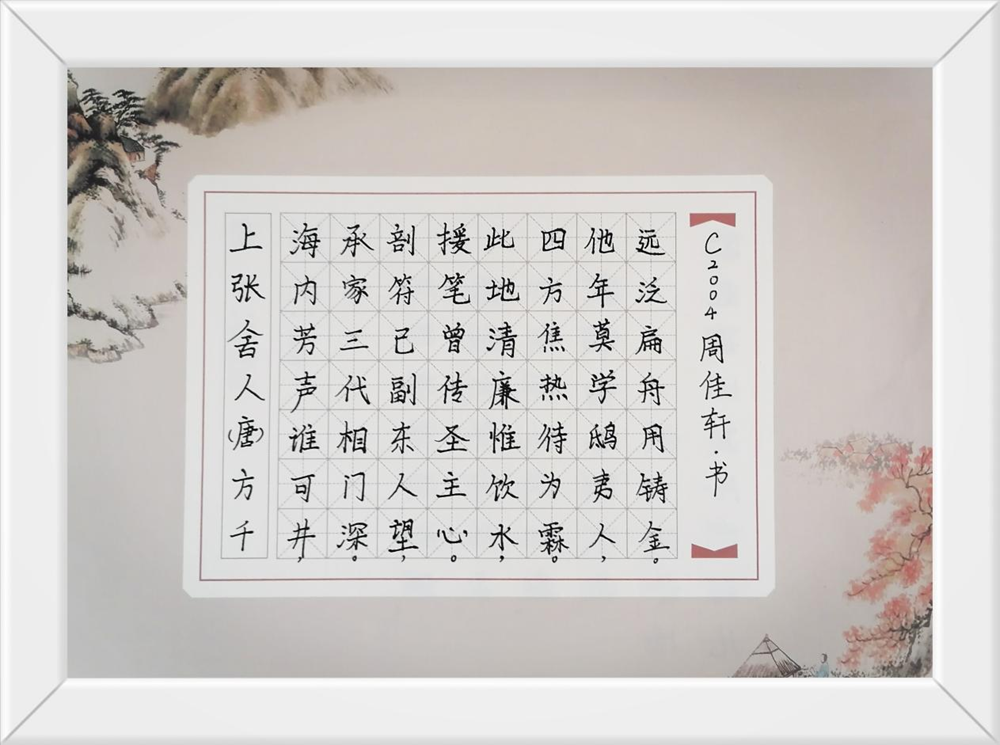 上张舍人(唐)方千
海内芳声谁可井,
承家三代相门深。
剖符已副东人望,
援笔曾传圣主心。
此地清廉惟饮水,
四方焦热待为霖。
他年莫学鸱夷人,
远泛扁舟用铸金。
C2004周佳轩·书